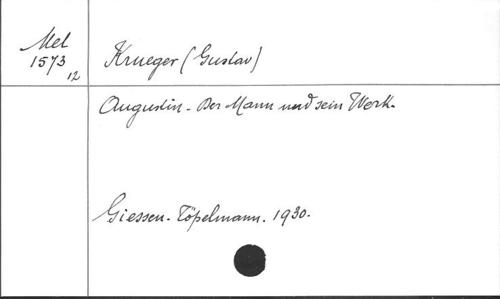 Mel
1573
12
Krueger (Gustav)
Augustin - Der Mann und sein Werk.
Giessen - Töpelmann. 1930.